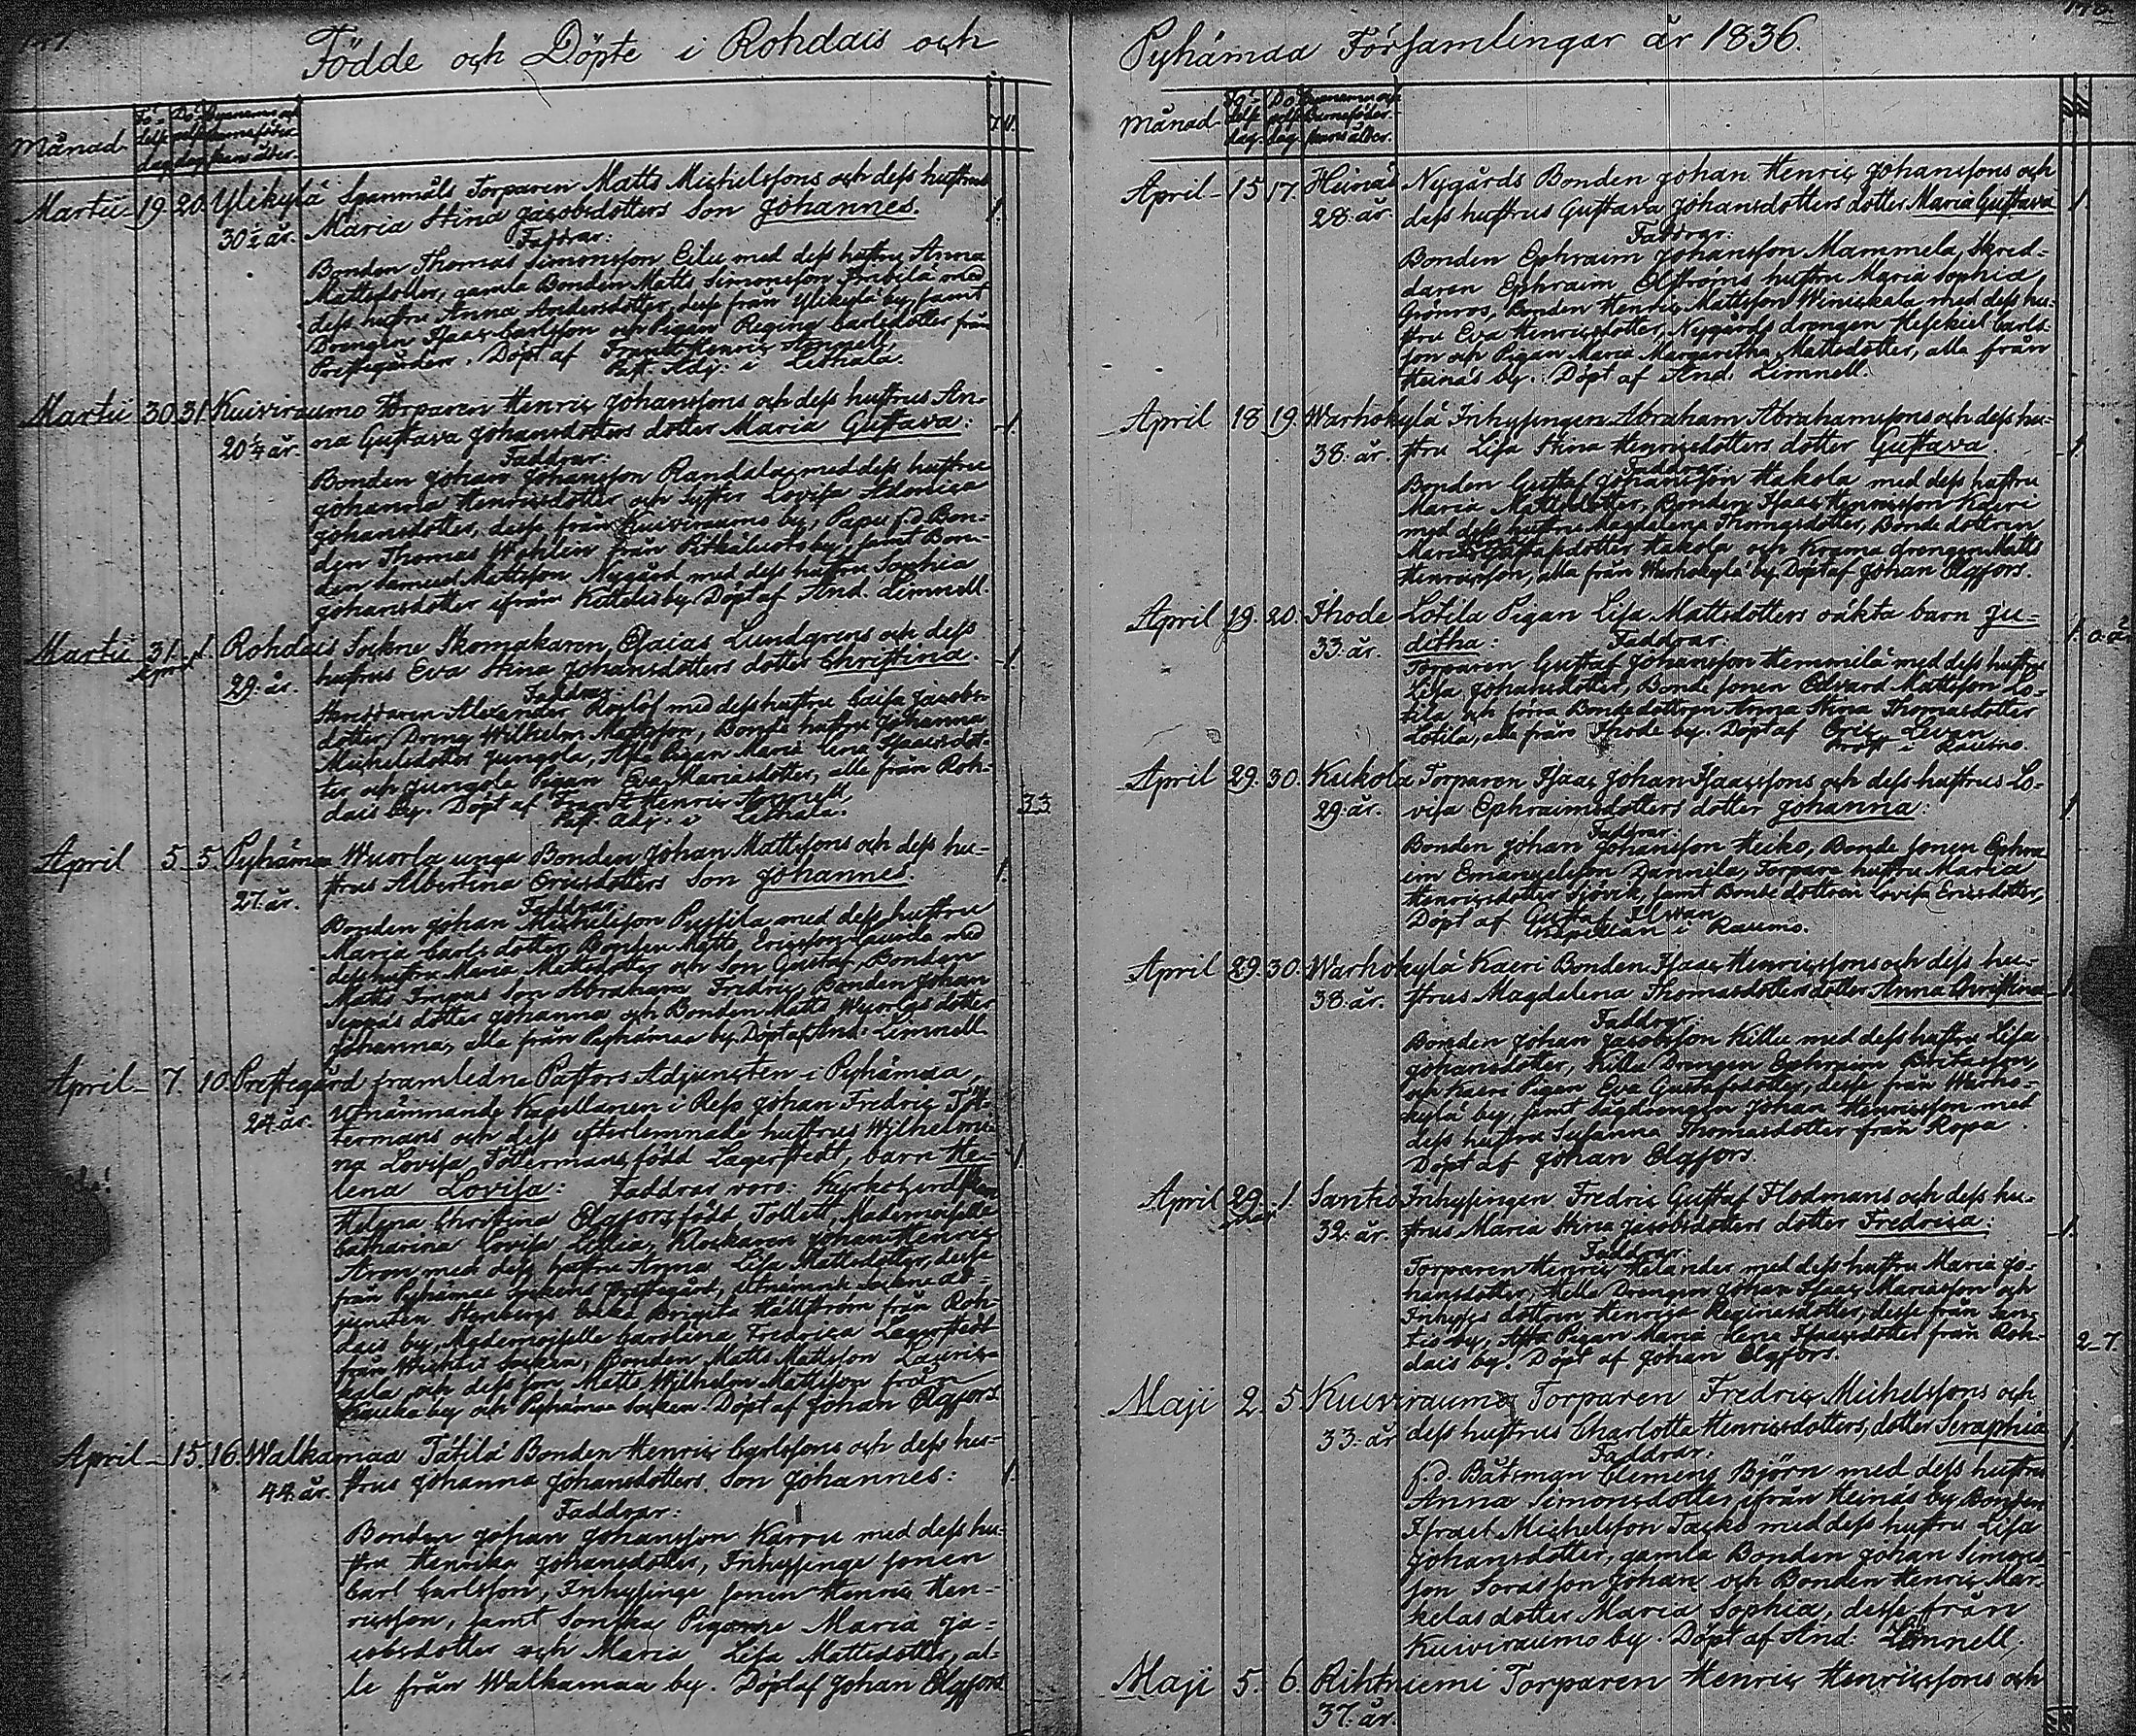 Födde och Döpte i Rohdais och
Månad
Martii 19. 20. Ylikylä Spanmåls Torparen Matts Michelssons och dess hustrus
30½ år. Maria Stina Jacobsdotters Son Johannes. 1.
Faddrar:
Bonden Thomas Simonsson Eilie med dess hustru Anna
Mattsdotter, gamla Bonden Matts Simonsson med
dess hustru Anna Andersdotter, desse från Ylikylä by, samt
Drengen Isaac Carlsson och Pigan Regina Carlsdotter från
Prestegården. Döpt af Frants Henric
Past. Adj. i Lethala.
Martii 30. 31. Kuiviraumo Torparen Henric Johanssons och dess hustrus An-
20¼ år. na Gustava Johansdotters dotter Maria Gustava: 1.
Faddrar:
Bonden Johan Johansson Randala med dess hustru
Johanna Henricsdotter och Syster Lovisa
Johansdotter, desse från Kuiviraumo by, Papu f.d. Bon-
den Thomas Wahlin från by, samt Bon-
den Samuel Mattsson Nygård med dess hustru Sophia
Johansdotter ifrån Kittelis by. Döpt af And. Limnell.
Martii 31. April 1. Rohdais Sockne Skomakaren Esaias Lundgrens och dess
29. år. hustrus Eva Stina Johansdotters dotter Christina. 1
Faddrar:
Skreddaren Alexander med dess hustru Caisa Jacobs-
dotter, Dreng Wilhelm Mattsson, Bonds hustru Johanna
Michelsdotter Jungola, Pigan Maria Lena Isaacsdot-
ter och Jungola Pigan Eva Mariasdotter, alle från Roh-
dais by. Döpt af Frants Henric
Past. Adj. i Lethala.
33
April 5. 5. Pyhämaa Wuorla unga Bonden Johan Mattssons och dess hu-
27. år. strus Albertina Ericsdotters Son Johannes. 1.
Faddrar:
Bonden Johan Michelsson med dess hustru
Maria Carlsdotter, Bonden Matts Ericsson med
dess hustru Maria Mattsdotter och Son Gustaf, Bonden
Matts Son Abraham Fredric, Bonden Johan
dotter Johanna och Bonden Matts Wuorlas dotter
Johanna, alla från Pyhämaa by. Döpt af And: Limnell.
April 7. 10. Prestegård framledne Pastors Adjuncten i Pyhämaa
24. år. utnämnande Kapellanen i Reso Johan Fredric Töt-
termans och dess efterlemnade hustrus Wilhelmi-
na Lovisa Tötterman, född Lagerstedt, barn He- 1.
lena Lovisa: Faddrar voro: Kyrkoherdskan
Helena Christina Elgfors född Tollett, Mademoiselle
Catharina Lovisa Klockaren Johan Henric
Aron med dess hustru Anna Lisa Mattsdotter, desse
från Pyhämaa Sockens Prestegård, utnämnde Sockne ad-
juncten Stenbergs Enka Brigita Hällström från Roh-
dais by, Mademoiselle Carolina Fredrica Lagerstedt
från Socken, Bonden Matts Mattsson
kala och dess son Matts Wilhelm Mattsson från
by och Pyhämaa Socken. Döpt af Johan Elgfors
April 15. 16. Walkamaa Tätilä Bonden Henric Carlssons och dess hu-
44. år. strus Johanna Johansdotters Son Johannes: 1.
Faddrar:
Bonden Johan Johansson Karru med dess hu-
stru Henrika Johansdotter, Inhysinge sonen
Carl Carlsson, Inhysinge sonen Henric Hen-
ricsson, samt Pigorne Maria Ja-
cobsdotter och Maria Lisa Mattsdotter, al-
le från Walkamaa by. Döpt af Johan Elgfors
Pyhämaa Församlingar år 1836.
Månad
April 15 17. Heinäs Nygårds Bonden Johan Henric Johanssons och
28. år. dess hustrus Gustava Johansdotters dotter Maria Gustava 1.
Faddrar:
Bonden Ephraim Johansson Mammela, Skred-
daren Ephraim Elfströms hustru Maria Sophia
Grönros, Bonden Henric Mattsson Winickala med dess hu-
stru Eva Henricsdotter, Nygårds drengen Hesekiel Carls-
son och Pigan Maria Margaretha Mattsdotter, alla från
Heinäs by. Döpt af And. Limnell.
April 18 19. Warhokylä Inhysingen Abraham Abrahamssons och dess hu-
38. år. stru Lisa Stina Henricsdotters dotter Gustava. 1
Faddrar:
Bonden Gustaf Johansson Hakola med dess hustru
Maria Mattsdotter, Bonden Isaac Henricsson Kaeri
med dess hustru Magdalena Thomasdotter, Bonde dottren
Maria Gustafsdotter Hakola och drengen Matts
Henricsson, alla från Warhokylä by. Döpt af Johan Elgfors.
April 19. 20. Ihode Lotila Pigan Lisa Mattsdotters oäkta barn Ju- 1. oä
33. år. ditha: Faddrar:
Torparen Gustaf Johansson Hemmilä med dess hustru
Lisa Johansdotter, Bonde sonen Edvard Mattsson Lo-
tila och förra Bondedottren Anna Stina Thomasdotter
Lotila, alla från Ihode by. Döpt af Eric Levan
Prost i Raumo.
April 29. 30. Kukola Torparen Isaac Johan Isaacssons och dess hustrus Lo-
29. år. visa Ephraimsdotters dotter Johanna: 1
Faddrar:
Bonden Johan Johansson Heiko, Bonde sonen Ephra
im Emanuelsson Dannila, Torpare hustru Maria
Henricsdotter Sjövik, samt Bonde dottren Lovisa Ericsdotter,
Döpt af Gustaf Ilvan
Kapellan i Raumo.
April 29. 30. Warhokylä Kaeri Bonden Isaac Henricssons och dess hu-
38. år. strus Magdalena Thomasdotters dotter Anna Christina 1.
Faddrar:
Bonden Johan Jacobsson Killu med dess hustru Lisa
Johansdotter, Killu Drengen Ephraim
och Kaeri Pigan Eva Gustafsdotter, desse från Warho-
kylä by, samt Johan Henricsson med
dess hustru Susanna Thomasdotter från Ropa.
Döpt af Johan Elgfors.
April 29. Maji 1. Santio Inhysingen Fredric Gustaf Flodmans och dess hu-
32. år. strus Maria Stina Jacobsdotters dotter Fredrica: 1.
Faddrar:
Torparen Henric Helander med dess hustru Maria Jo-
hansdotter, Drengen Johan Isaac Mariasson och
Inhyses dottren Henrica Reginasdotter, desse från San-
tio by, Pigan Maria Lena Isaacsdotter från Roh-
dais by. Döpt af Johan Elgfors. 2_7.
Maji 2. 5. Kuiviraumo Torparen Fredric Michelssons och
33. år dess hustrus Charlotta Henricsdotters, dotter Seraphia 1.
Faddrar:
f.d. Båtsman Clemens Björn med dess hustru
Anna Simonsdotter ifrån Heinäs by, Bonden
Israel Michelsson Tacko med dess hustru Lisa
Johansdotter, gamla Bonden Johan Simons
son Soras son Johan och Bonden Henric Mar-
kelas dotter Maria Sophia, desse från
Kuiviraumo by. Döpt af And: Limnell.
Maji 5. 6. Rihtniemi Torparen Henric Henricssons och
37. år.